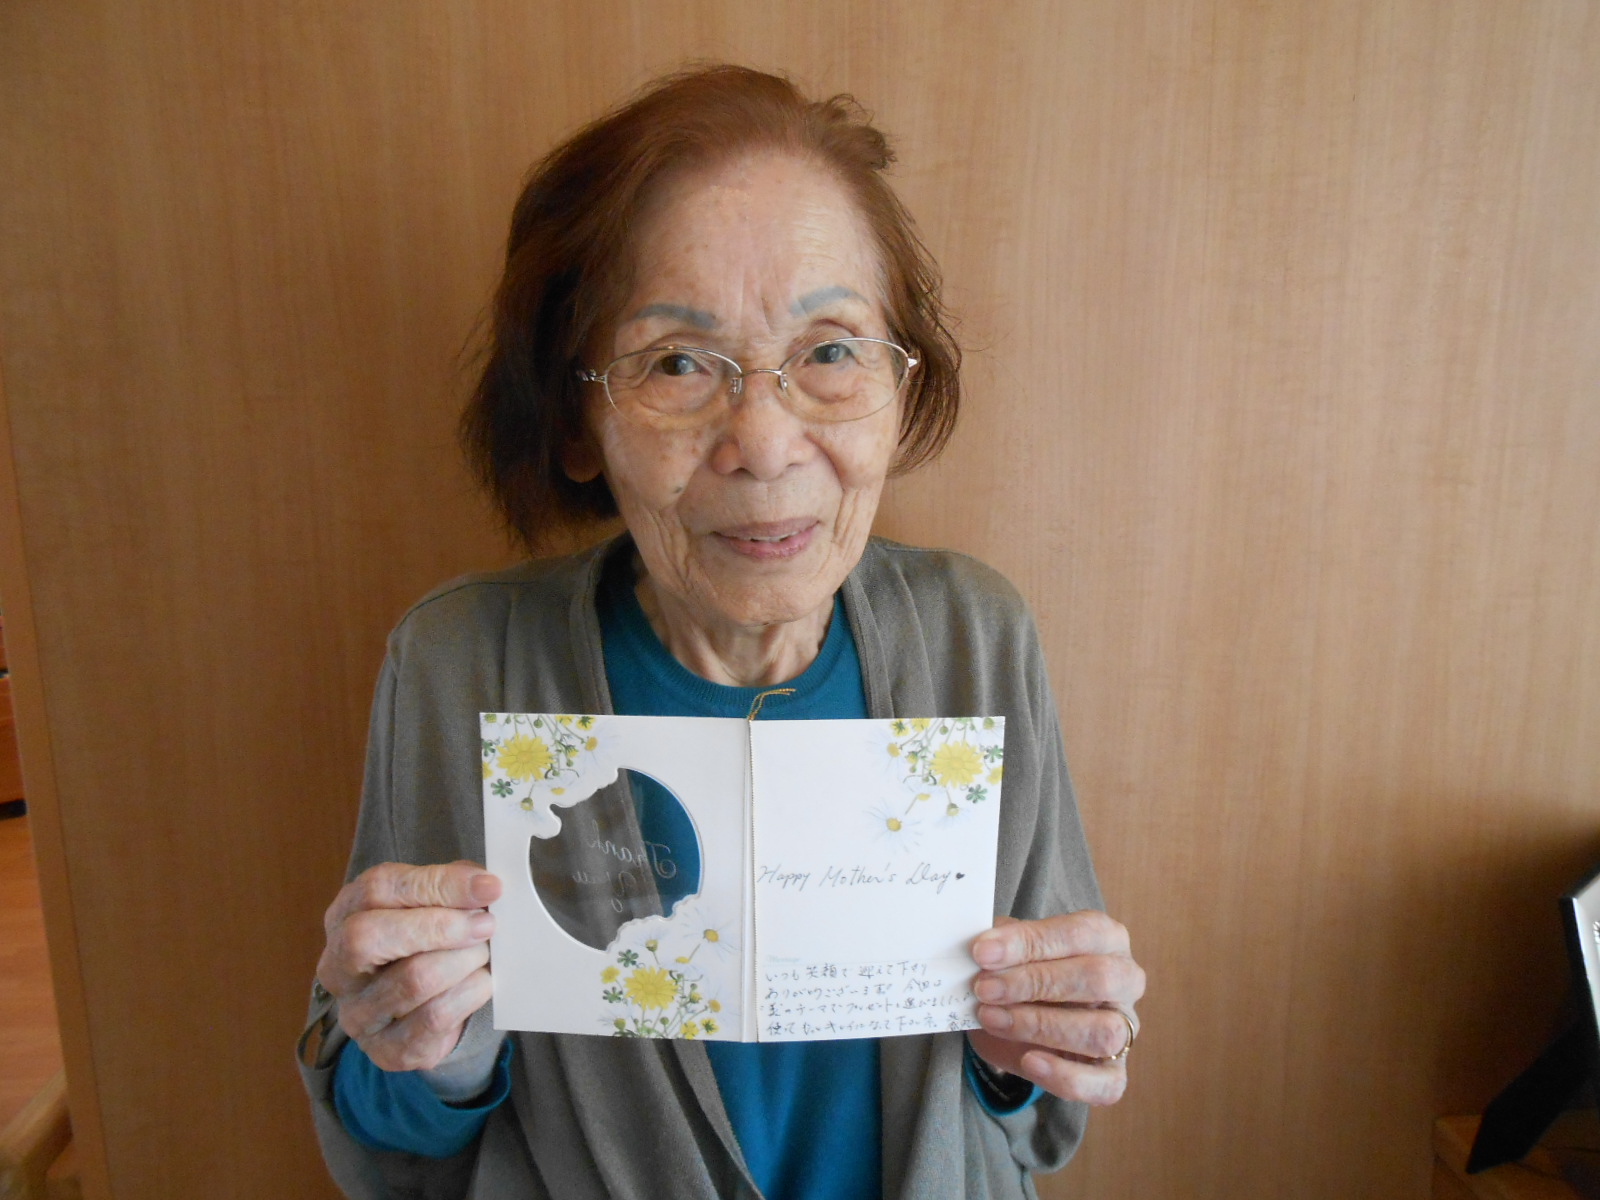 Thank
You
Happy Mother's Day♥
Message
いつも笑顔で迎えて下さり
ありがとうございます 今回は
美のテーマでプレゼントを選びました
使って キレイになって下さいネ